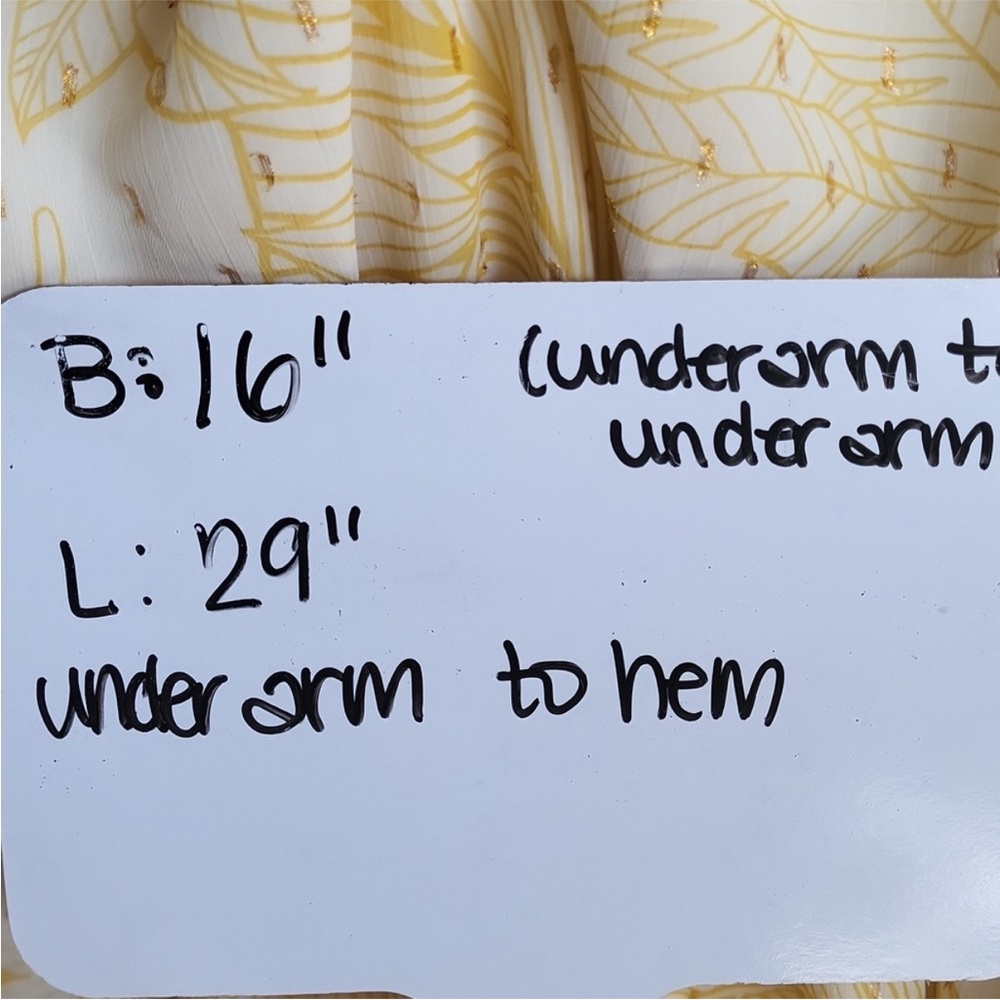 B: 16" (underarm to
underarm
L: 29"
underarm to hem